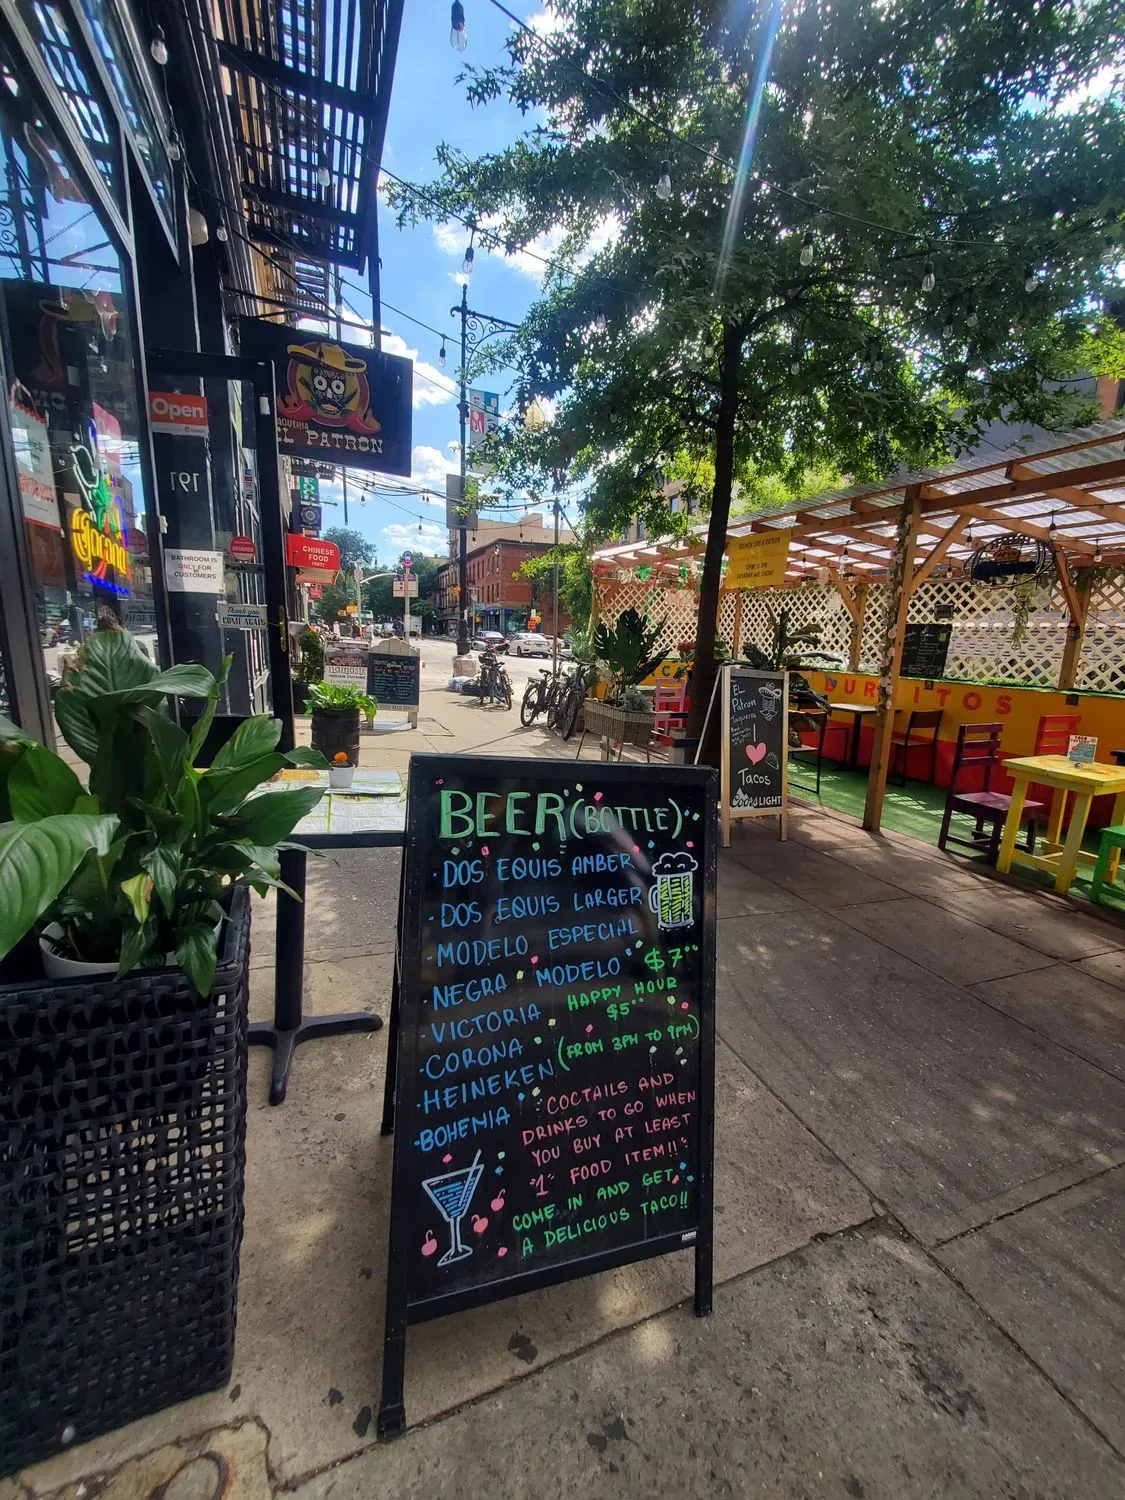 Open
191
Corona
BATHROOM IS
ONLY FOR
CUSTOMERS
Thank you
COME AGAIN
EL PATRON
CHINESE
FOOD
OPEN
namaste
INDIAN CUISINE
BURRITOS
EL
Patron
Taqueria
I
Tacos
Coors LIGHT
BEER (BOTTLE)
· DOS EQUIS AMBER
· DOS EQUIS LARGER
· MODELO ESPECIAL
· NEGRA MODELO $7
· VICTORIA HAPPY HOUR
$5
· CORONA (FROM 3PM TO 9PM)
· HEINEKEN
· BOHEMIA
COCTAILS AND
DRINKS TO GO WHEN
YOU BUY AT LEAST
"1" FOOD ITEM!!
COME IN AND GET
A DELICIOUS TACO!!